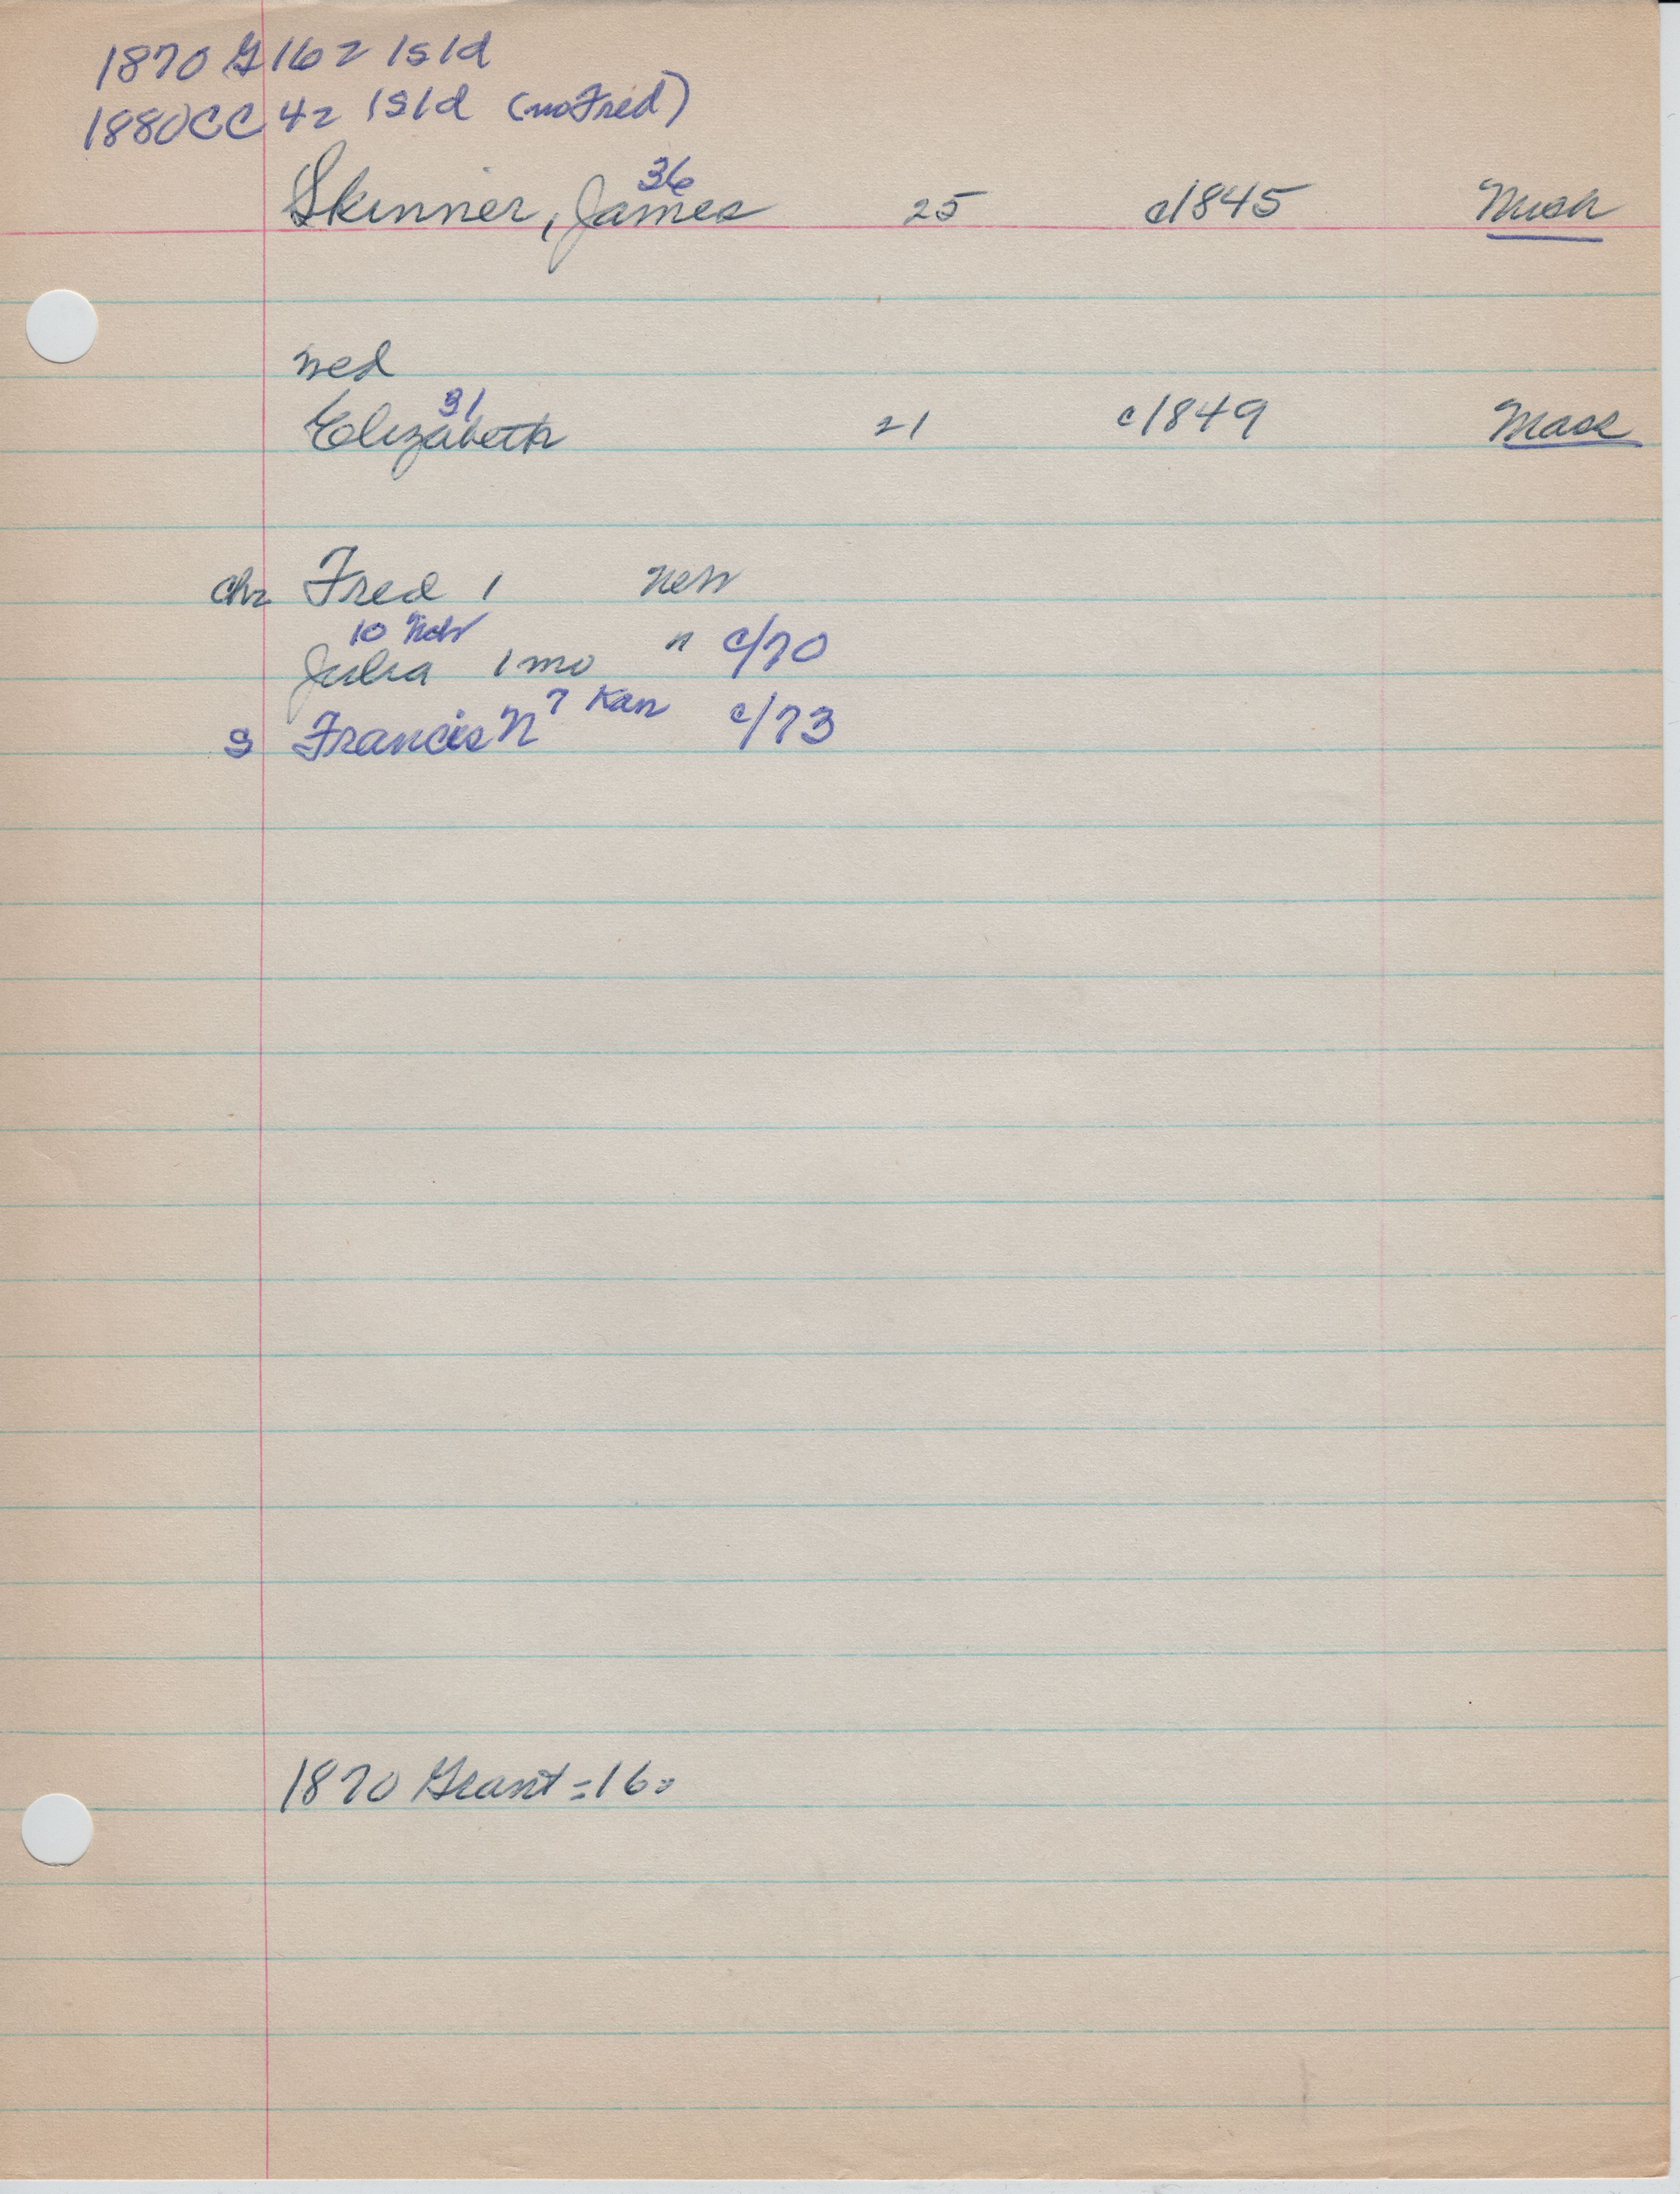 1870 G 162 Isld
1880 CC 42 Isld (no Fred)
36
Skinner, James 25 c1845 Mich
wed
31
Elizabeth 21 c1849 Mass
ch2 Fred 1 Nev
10 Nev
Julia 1 mo " c/70
7 Kan
S Francis N c/73
1870 Grant = 16